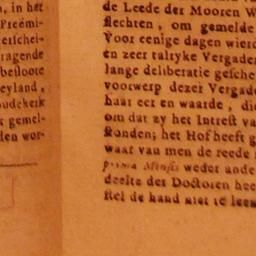 , in het
Preëmi-
erschei-
ragende
besloote
eyland,
oudekerk
gemel-
den wor-
de Leede der Mooren W
slechten, om gemelde
Voor eenige dagen wierd
en zeer talryke Vergader
lange deliberatie gesche
voorwerp dezer Vergade
haar eer en waarde, die
om dat zy het Intrest va
stonden; het Hof heeft g
waar van men de reede
prima Mensis weder ande
deelte der Doctoren hee
stel de hand niet te leen